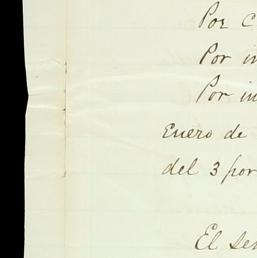 Por C
Por in
Por in
Enero de
del 3 por
El Se